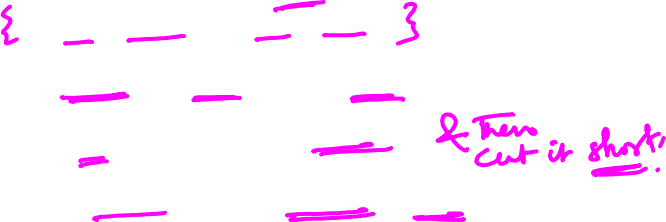 { }
& Then
cut it short,